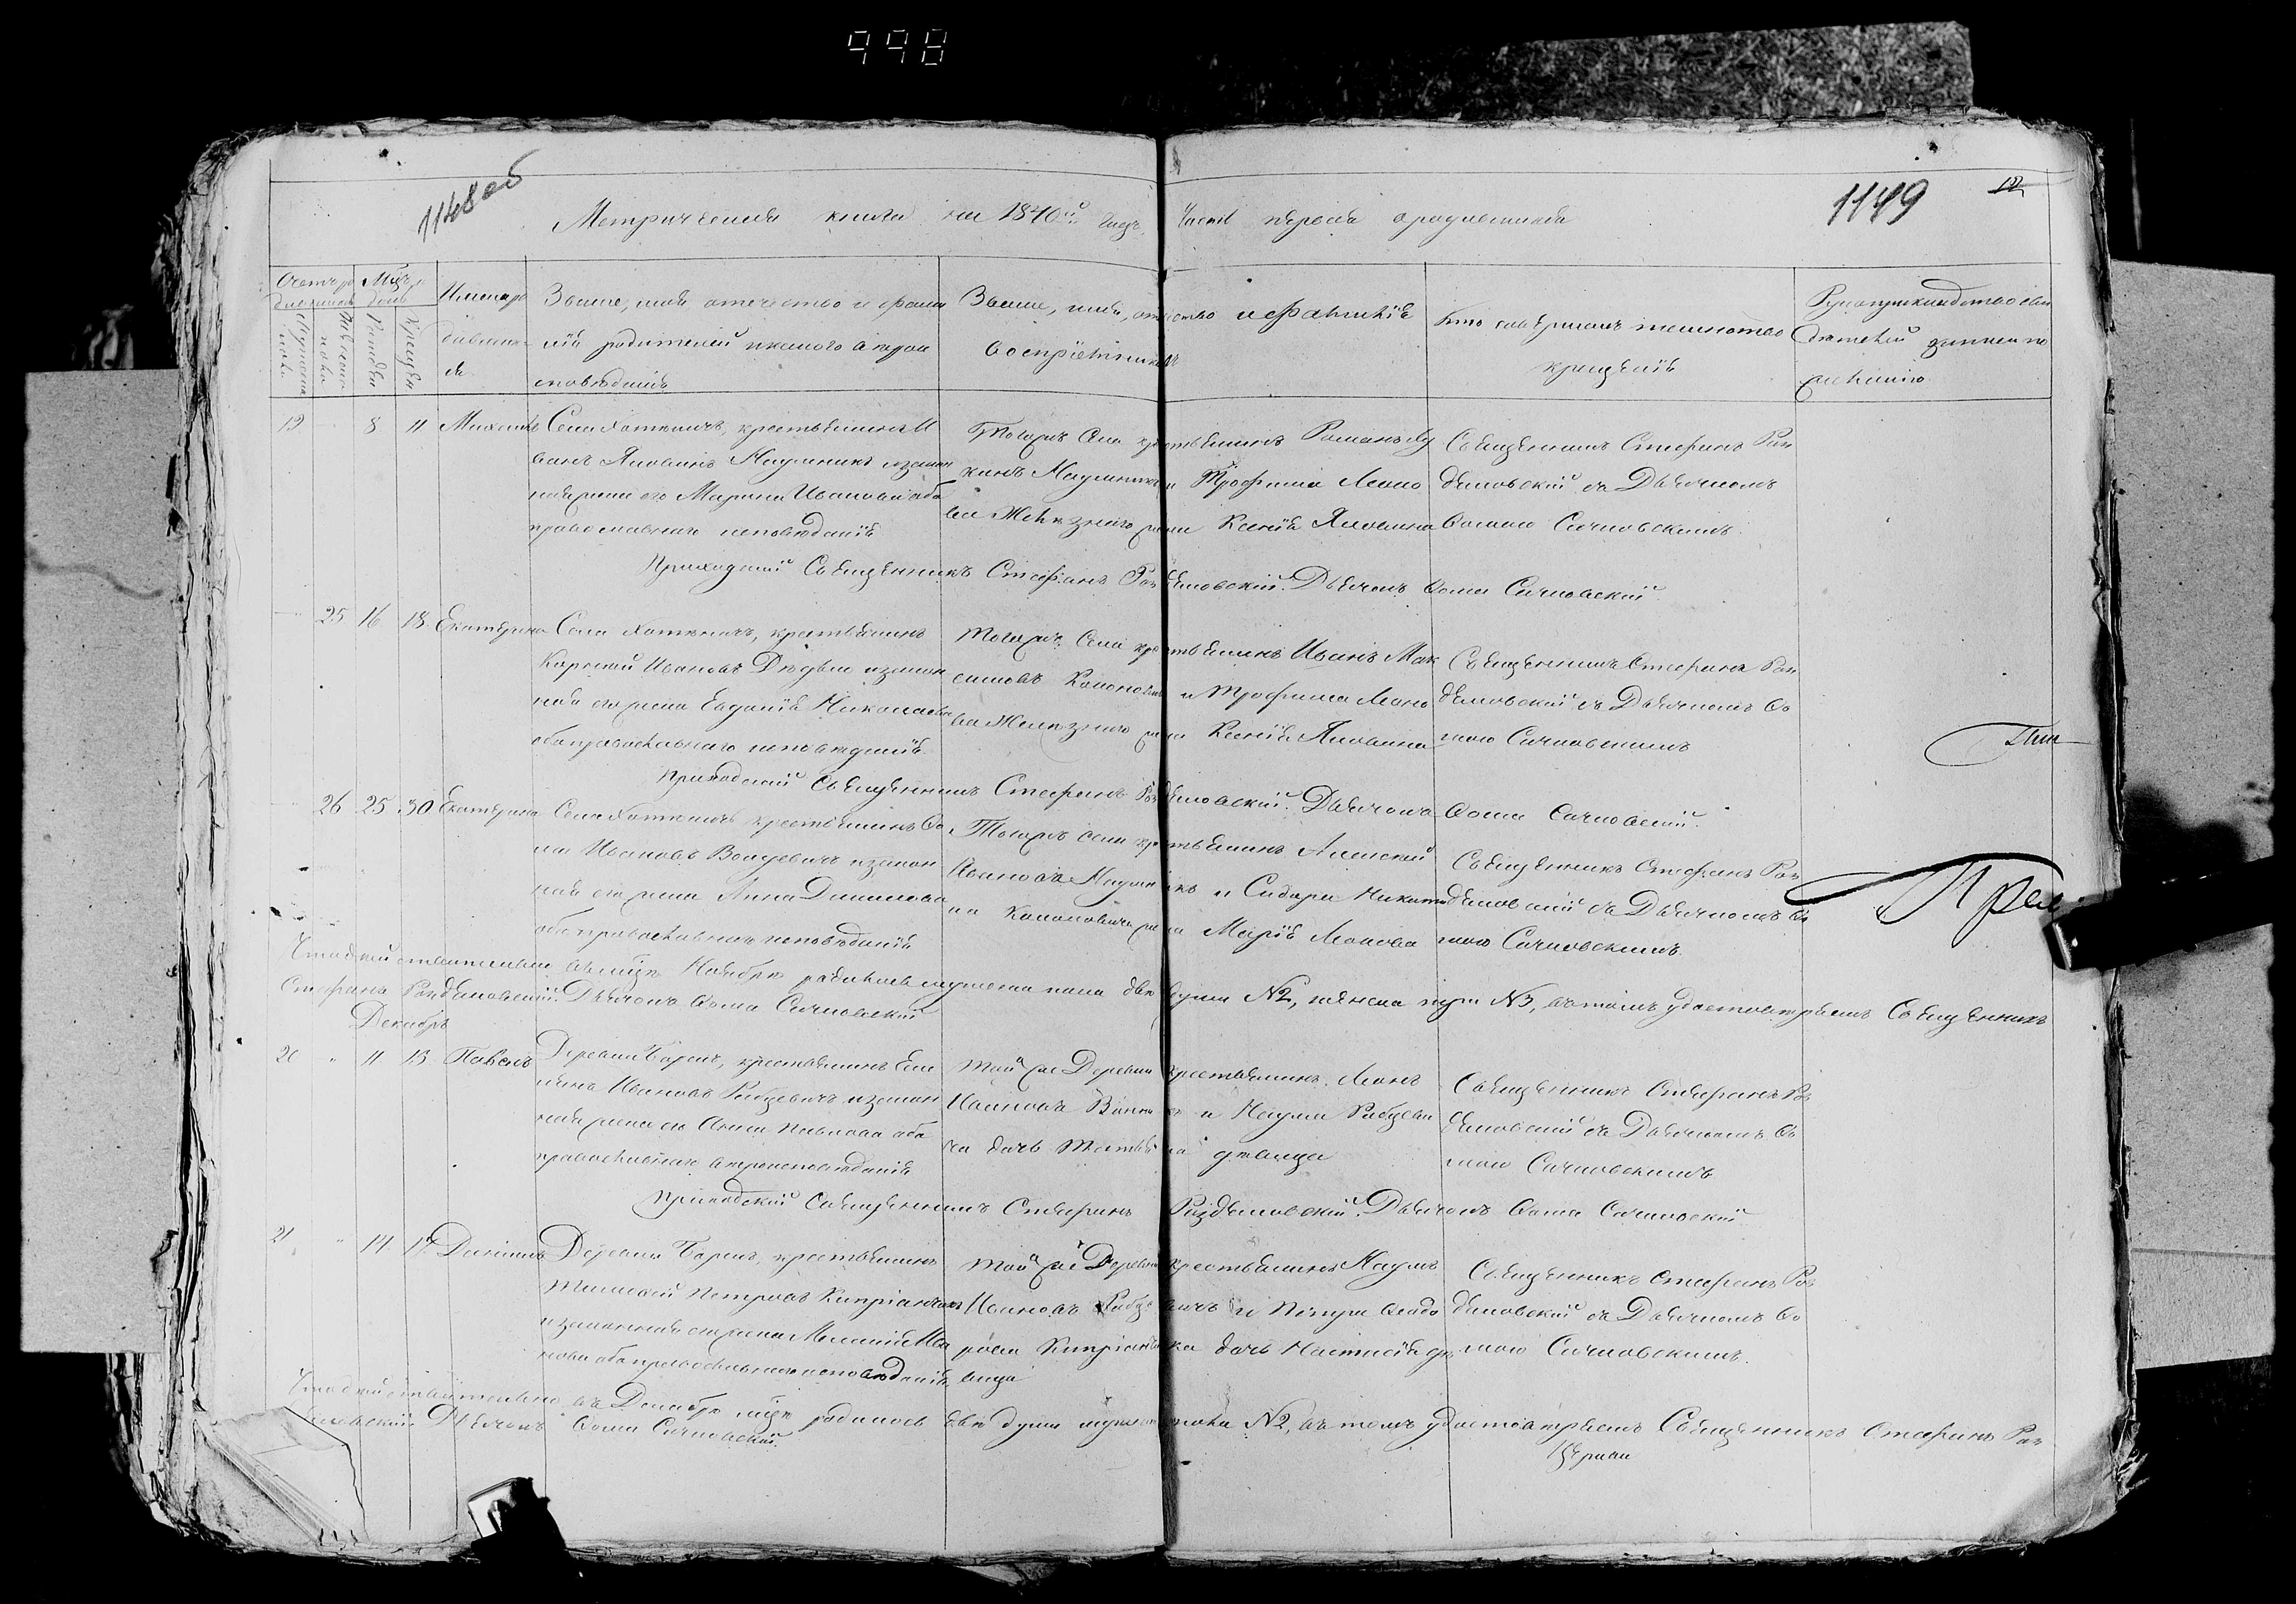 998
1148 об
1149
12
Метрическая книга на 1840й годъ Часть первая о родившихся
Счетъ родившихся
Мужеска пола
Женска пола
Мѣсяцъ и день
Рожденія
Крещенія
Имена родившихся
Званіе, имя отечество и фамилія родителей и какого вѣроисповѣданія
Званіе, имя, отчество и фамилія воспріемниковъ
Кто совершалъ таинство крещенія
Рукоприкладство свидѣтелей записи по желанію
19 8 11 Михаилъ
Села Хотыничъ, крестьянинъ Иванъ Яковлевъ Наумчикъ и законная жена его Марина Иванова оба православнаго исповѣданія
Тогожъ Села крестьянинъ Романъ Лукинъ Наумчикъ и Трофима Леонова Желѣзнаго жена Ксенія Яковлева
Священникъ Стефанъ Раздяловскій съ Дьячкомъ Ѳомою Сачковскимъ
Приходскій Священникъ Стефанъ Раздяловскій. Дьячокъ Ѳома Сачковскій
25 16 18 Екатерина
Села Хотыничъ, крестьянинъ Корнтий Ивановъ Дѣдъ и законная его жена Евдокія Николаева оба православнаго исповѣданія
Тогожъ Села крестьянинъ Иванъ Максимовъ Кононовичъ и Трофима Леонова Желѣзнаго жена Ксенія Яковлева
Священникъ Стефанъ Раздяловскій съ Дьячкомъ Ѳомою Сачковскимъ
Приходскій Священникъ Стефанъ Раздяловскій. Дьячокъ Ѳома Сачковскій.
26 25 30 Екатерина
Села Хотыничъ крестьянинъ Ѳома Ивановъ и законная его жена Анна Данилова оба православнаго исповѣданія
Тогожъ села крестьянинъ Алексей Ивановъ Наумчикъ и Сидора Никитина Кононовича жена Марія Леонова
Священникъ Стефанъ Раздяловскій съ Дьячкомъ Ѳомою Сачковскимъ.
Что дѣйствительно въ мѣсяцѣ Ноябрѣ родилось мужеска пола двѣ души №2, женска пять №3, въ томъ удостовѣряемъ Священникъ
Стефанъ Раздяловскій. Дьячокъ Ѳома Сачковскій
Декабрь
20 " 11 13 Павелъ
Деревни Борки, крестьянинъ Ивановъ Рабцевичъ и законная жена его Анна Павлова оба православнаго вѣроисповѣданія
той же Деревни крестьянинъ Леонъ Ивановъ и Наума Рабцевича дочь дѣвица
Священникъ Стефанъ Раздяловскій съ Дьячкомъ Ѳомою Сачковскимъ
Приходскій Священникъ Стефанъ Раздяловскій. Дьячокъ Ѳома Сачковскій
21 " 14 17 Даніилъ
Деревни Борки, крестьянинъ Тимофей Петровъ Кипріанчикъ и законная его жена Меланія Иванова оба православнаго исповѣданія
той же Деревни крестьянинъ Наумъ Ивановъ Рабцевичъ и Петра Ѳедорова Кипріанчика дочь Настасія дѣвица
Священникъ Стефанъ Раздяловскій съ Дьячкомъ Ѳомою Сачковскимъ.
Что дѣйствительно въ Декабрѣ мѣсяцѣ родилось двѣ души мужеска пола №2, въ томъ удостовѣряемъ Священникъ Стефанъ Раздяловскій Дьячокъ Ѳома Сачковскій.